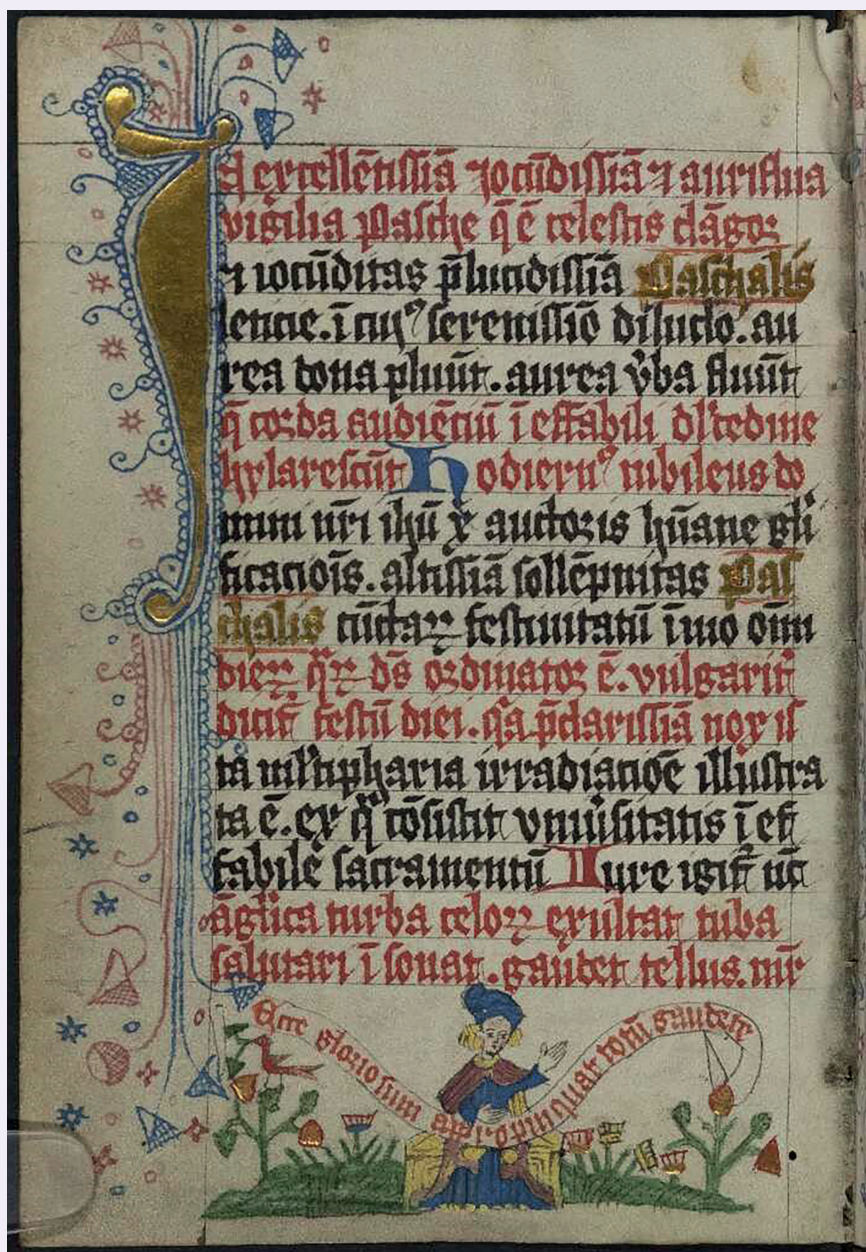 In excellētissiā ⁊ iocūdissiā ⁊ auriflua
vigilia Pasche q̄ ē celestis clāgor
⁊ iocūditas p̄lucidissiā Paschalis
lencie. ī cuiꝰ serenissiō diluclo. au
rea dona pluūt. aurea v̄ba fluūt
q̄ corda audiēciū ī effabili dl̄cedine
hylarescūt Hodiernꝰ iubileus do
mini nr̄i ihū x̄ auctoris hūane gl̄i
ficacioīs. altissiā sollēpnitas Pas
chalis cūctaꝝ festiuitatū īmo oīm
dieꝝ qꝝ dn̄s ordinator ē. vulgarit̄
dicit̄ festū diei. q̄a p̄clarissiā nox is
ta ml̄tipharia irradiacioē illustra
ta ē. ex q̄ cōsistit vniūsitatis ī ef
fabile sacramentū Iure igit̄ nūc
āgl̄ica turba celoꝝ exultat tuba
salutari ī sonat. gaudet tellus. mr̄
Ecce gloriosum appropinquat totū gaudete